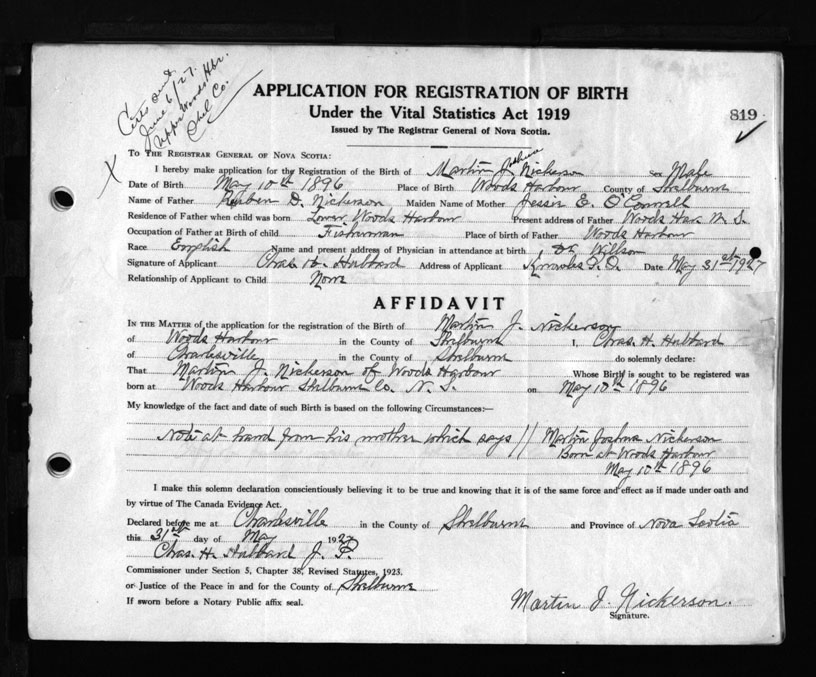 Certs sent
June 6/27.
Upper Woods Hbr.
Shel Co.
APPLICATION FOR REGISTRATION OF BIRTH
Under the Vital Statistics Act 1919
819
Issued by The Registrar General of Nova Scotia.
To THE REGISTRAR GENERAL OF NOVA SCOTIA:
I hereby make application for the Registration of the Birth of Martin J Joshua Nickerson Sex Male
Date of Birth May 10th 1896 Place of Birth Woods Harbour County of Shelburne
Name of Father Reuben D. Nickerson Maiden Name of Mother Jessie E. O'Connell
Residence of Father when child was born Lower Woods Harbour Present address of Father Woods Har. N. S.
Occupation of Father at Birth of child Fisherman Place of birth of Father Woods Harbour
Race English Name and present address of Physician in attendance at birth Dr Willson
Signature of Applicant Chas. H. Hubbard Address of Applicant Date May 31st 1927
Relationship of Applicant to Child None
AFFIDAVIT
IN THE MATTER of the application for the registration of the Birth of Martin J. Nickerson
of Woods Harbour in the County of Shelburne I, Chas. H. Hubbard
of Charlesville in the County of Shelburne do solemnly declare:
That Martin J. Nickerson of Woods Harbour Whose Birth is sought to be registered was
born at Woods Harbour Shelburne Co. N. S. on May 10th 1896
My knowledge of the fact and date of such Birth is based on the following Circumstances:—
Note at hand from his mother which says // Martin Joshua Nickerson
Born at Woods Harbour
May 10th 1896
I make this solemn declaration conscientiously believing it to be true and knowing that it is of the same force and effect as if made under oath and
by virtue of The Canada Evidence Act.
Declared before me at Charlesville in the County of Shelburne and Province of Nova Scotia
this 31st day of May 1927
Chas. H. Hubbard J. P.
Commissioner under Section 5, Chapter 38, Revised Statutes, 1923.
or Justice of the Peace in and for the County of Shelburne
If sworn before a Notary Public affix seal.
Martin J. Nickerson.
Signature.